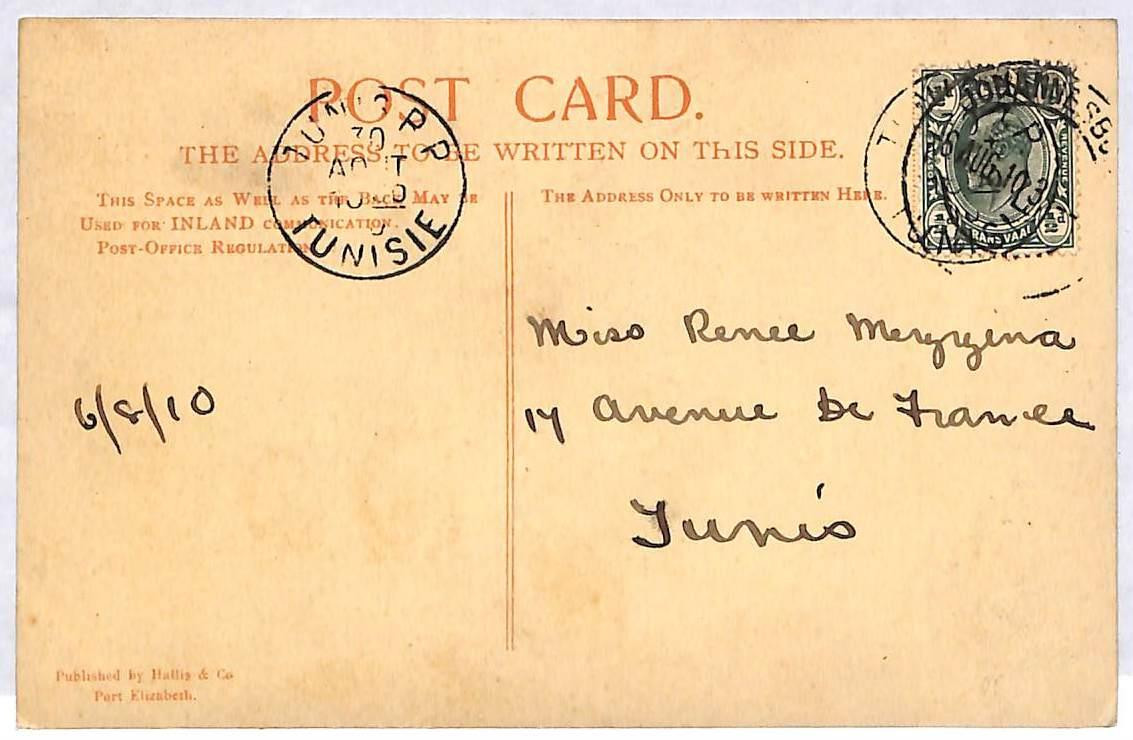 POST CARD.
THE ADDRESS TO BE WRITTEN ON THIS SIDE.
THIS SPACE AS WELL AS THE BACK MAY BE
USED FOR INLAND COMMUNICATION.
POST-OFFICE REGULATION.
THE ADDRESS ONLY TO BE WRITTEN HERE.
30
AOUT
TUNISIE
JOHANNESBU
6 AUG 10
TRANSVAAL
Miss Renee Mezzina
17 Avenue De France
Tunis
6/8/10
Published by Hallis & Co
Port Elizabeth.